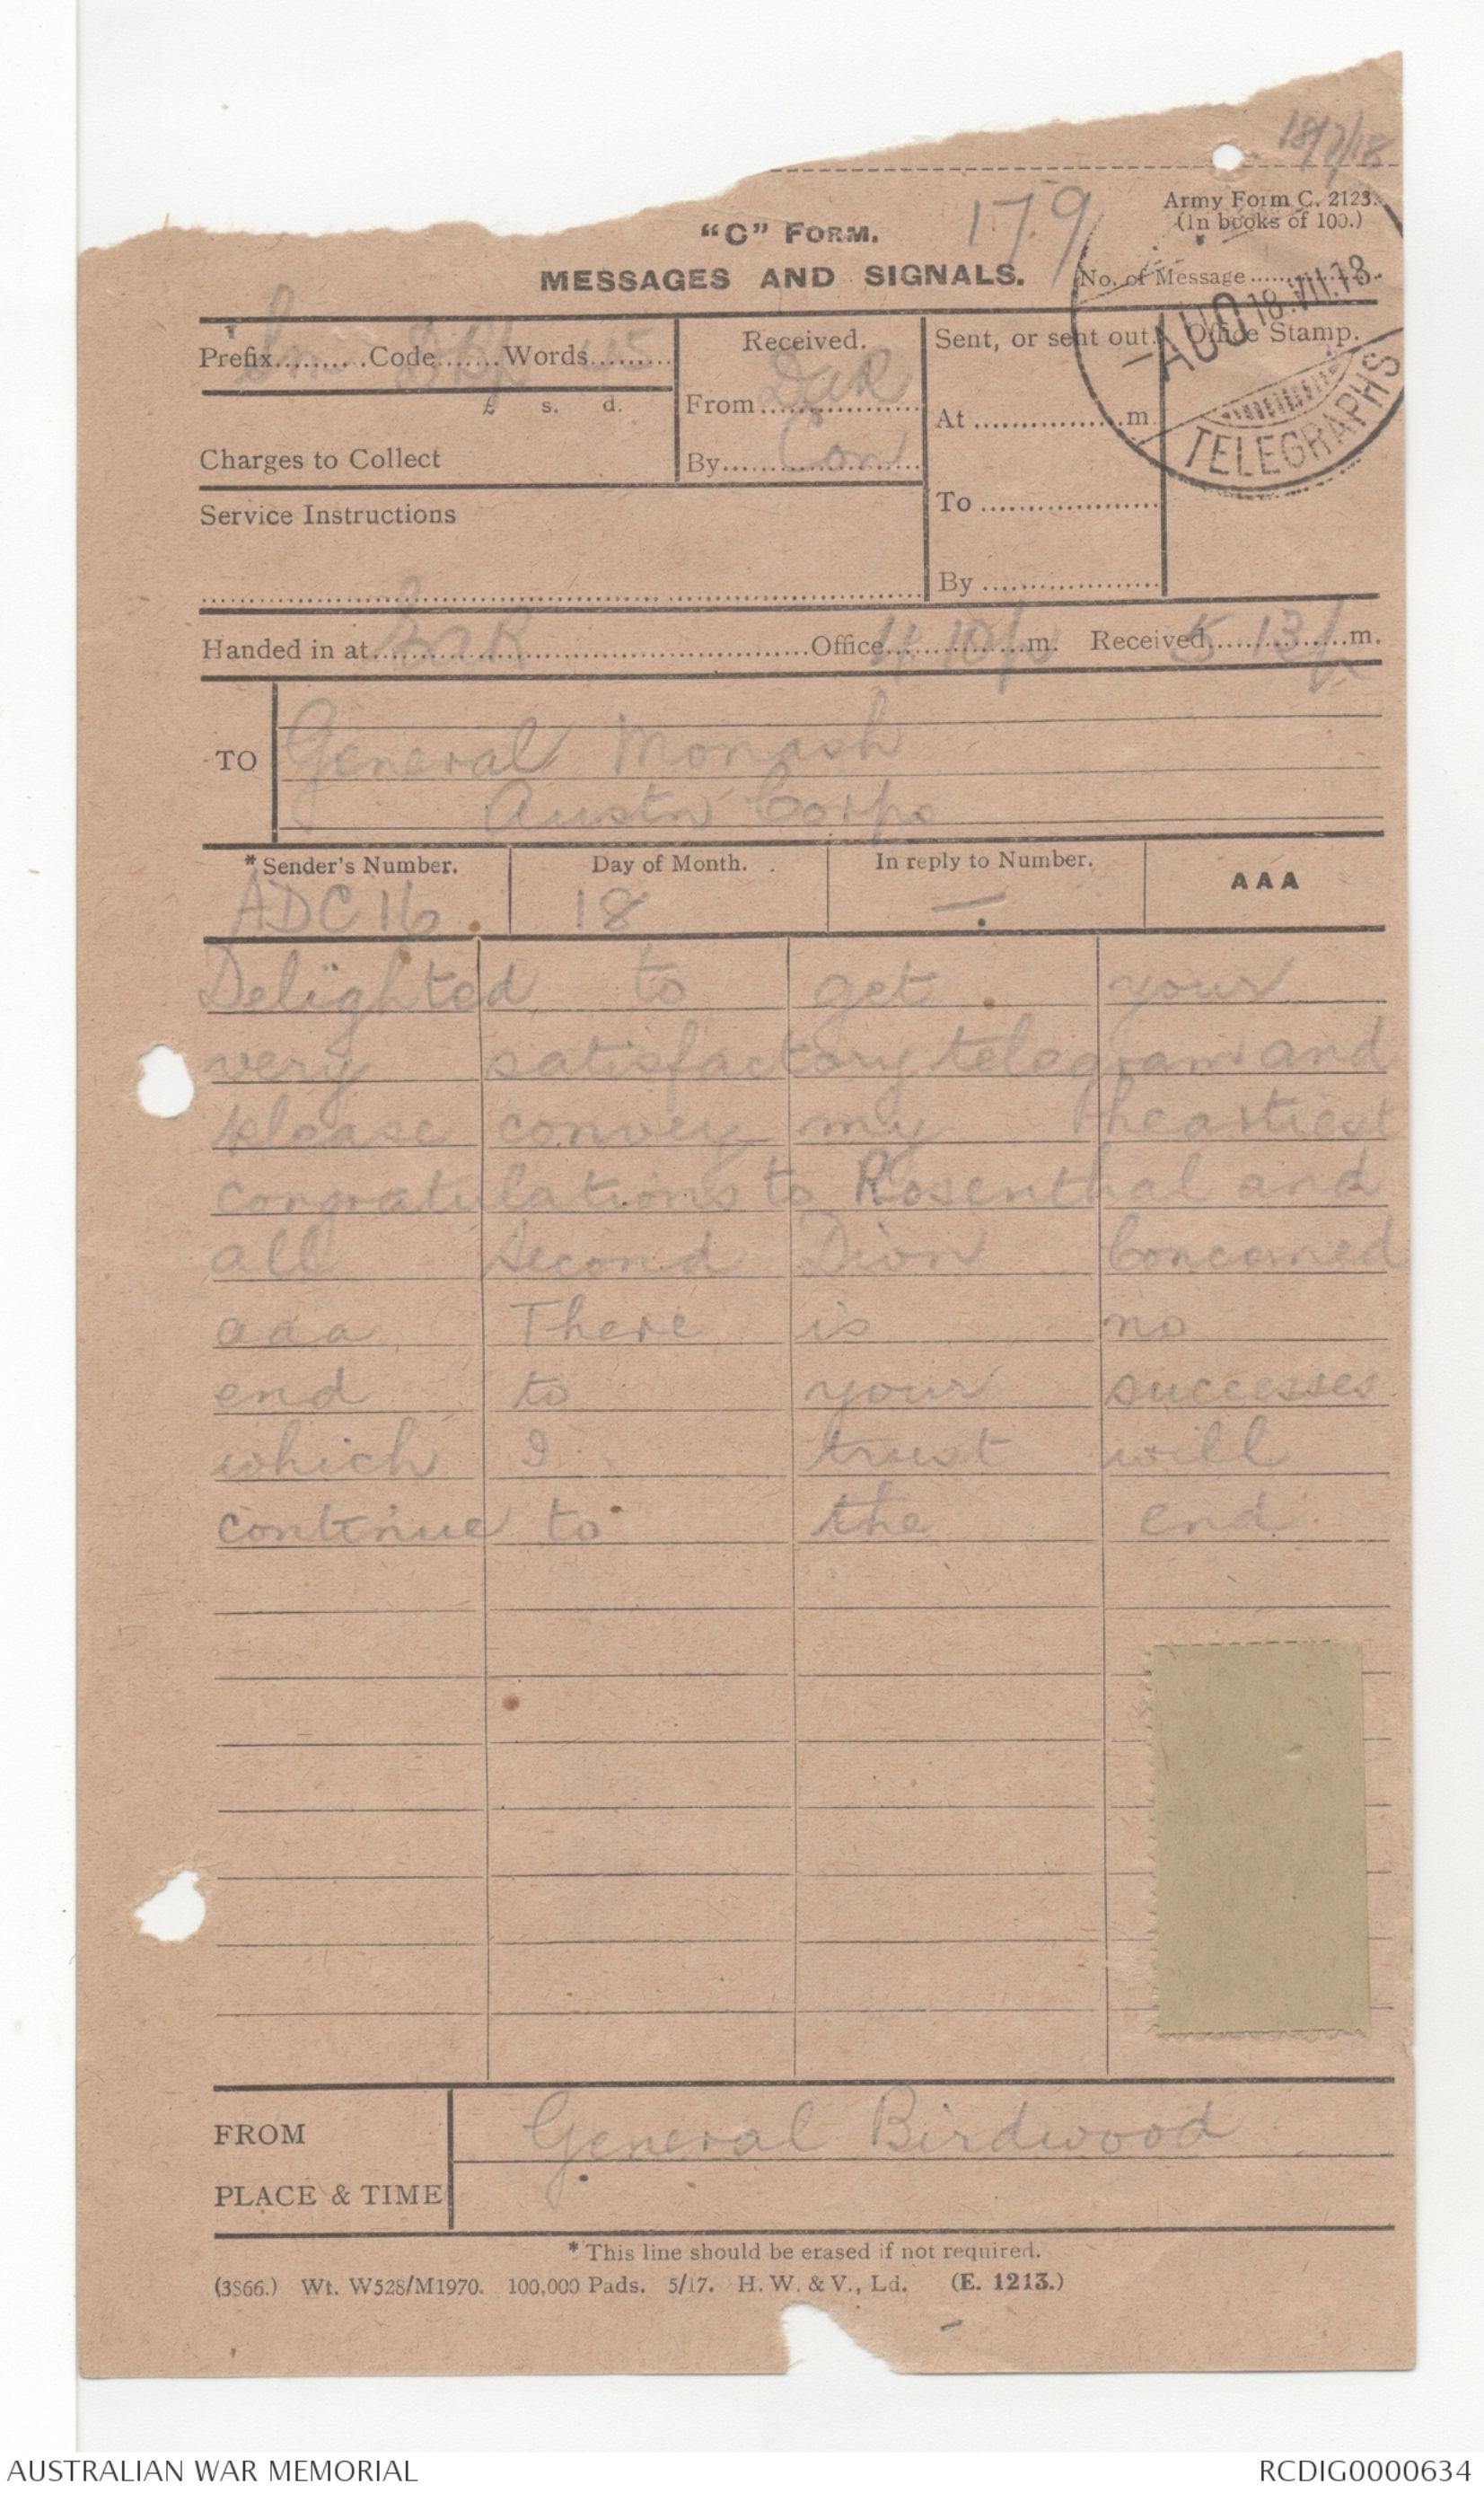 18/7/18
Army Form C. 2123.
(In books of 100.)
179
"C" FORM.
MESSAGES AND SIGNALS.
No. of Message
Prefix Code Words
£ s. d.
Charges to Collect
Received.
From
By Con
Sent, or sent out.
At m.
To
By
Office Stamp.
AUO 18.VII.18.
TELEGRAPHS
Service Instructions
Handed in at Office 4 10p m. Received 5 13p m.
TO General Monash
Austn Corps
*Sender's Number. Day of Month. In reply to Number. AAA
ADC 16 18 —
Delighted to get your
very satisfactory telegram and
please convey my heartiest
congratulations to Rosenthal and
all Second Divn Concerned
aaa There is no
end to your successes
which I trust will
continue to the end
FROM General Birdwood
PLACE & TIME
* This line should be erased if not required.
(3866.) Wt. W528/M1970. 100,000 Pads. 5/17. H. W. & V., Ld. (E. 1213.)
AUSTRALIAN WAR MEMORIAL RCDIG0000634